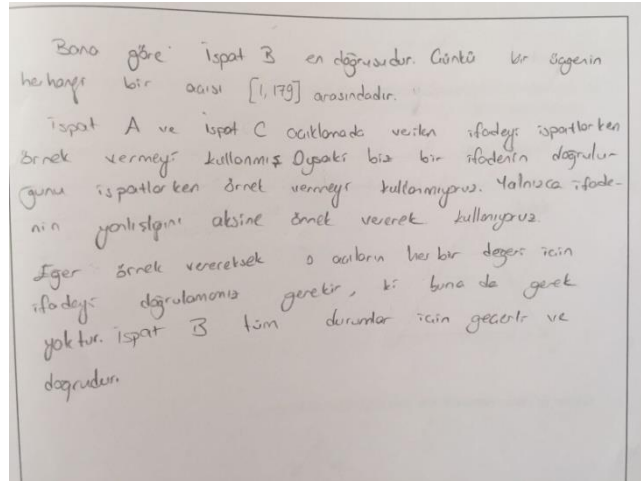 Bana göre İspat B en doğrusudur. Çünkü bir üçgenin
herhangi bir açısı [1, 179] arasındadır.
İspat A ve İspat C açıklamada verilen ifadeyi ispatlarken
örnek vermeyi kullanmış Oysaki biz bir ifadenin doğrulu-
ğunu ispatlarken örnek vermeyi kullanmıyoruz. Yalnızca ifade-
nin yanlışlğını aksine örnek vererek kullanıyoruz.
Eğer örnek vereceksek o açıların her bir değeri için
ifadeyi doğrulamamız gerekir, ki buna da gerek
yoktur. İspat B tüm durumlar için geçerli ve
doğrudur.